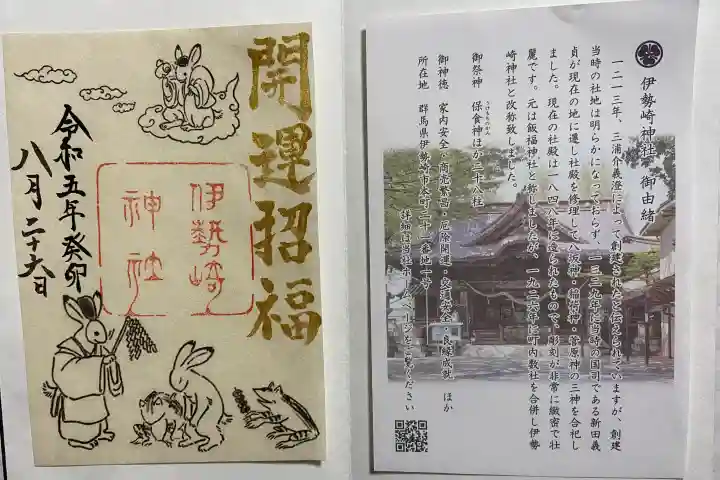 開運招福
伊勢崎
神社
令和五年癸卯
八月二十六日
伊勢崎神社 御由緒
一二一三年、三浦介義澄によって創建されたと伝えられていますが、創建
当時の社地は明らかになっておらず、一三三九年に当時の国司である新田義
貞が現在の地に遷し社殿を修理して八坂神・稲荷神・菅原神の三神を合祀し
ました。現在の社殿は一八四八年に造られたもので、彫刻が非常に緻密で壮
麗です。元は飯福神社と称しましたが、一九二六年に町内数社を合併し伊勢
崎神社と改称致しました。
御祭神 保食神ほか二十八柱
うけもちのかみ
御神徳 家内安全・商売繁昌・厄除開運・交通安全・良縁成就 ほか
所在地 群馬県伊勢崎市本町二十一番地一号
詳細は当社ホームページをご覧ください